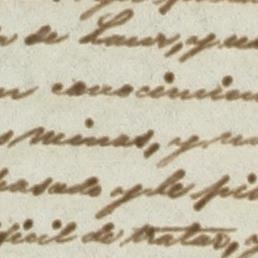 de Laur, y
conocimien
minas, y
pasado y le pi
ficil de tratar, y